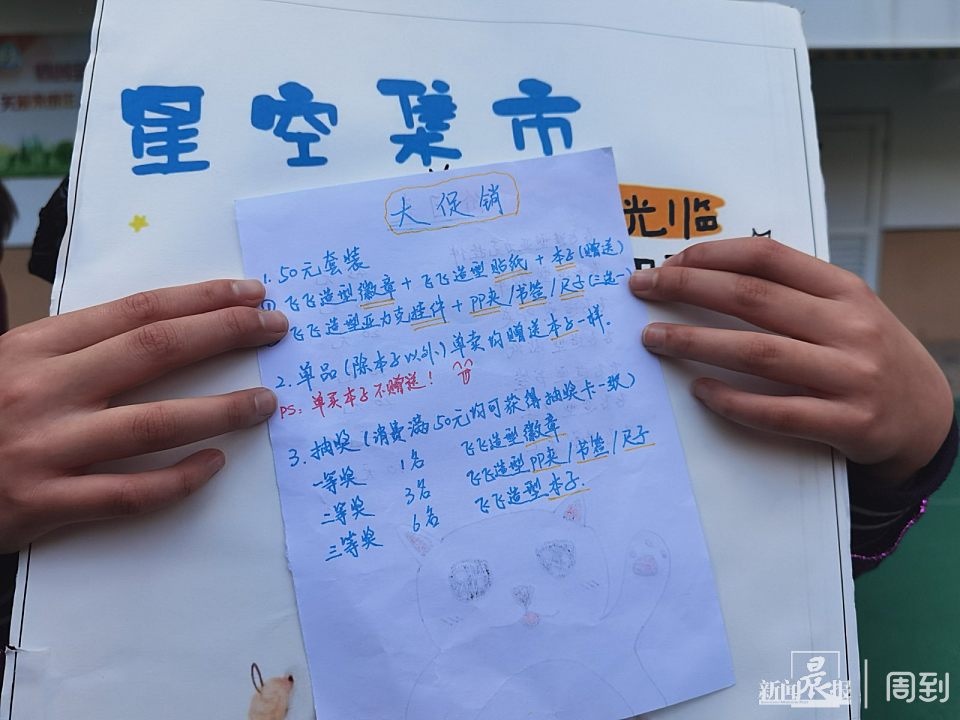 星空集市
光临
大促销
1. 50元套装
① 飞飞造型徽章 + 飞飞造型贴纸 + 本子(赠送)
飞飞造型亚力克挂件 + PP夹/书签/尺子(三选一)
2. 单品(除本子以外)单卖均赠送本子一样.
PS: 单买本子不赠送!
3. 抽奖(消费满50元均可获得抽奖卡一张)
一等奖 1名 飞飞造型徽章
二等奖 3名 飞飞造型PP夹/书签/尺子
三等奖 6名 飞飞造型本子.
新闻晨报 | 周到